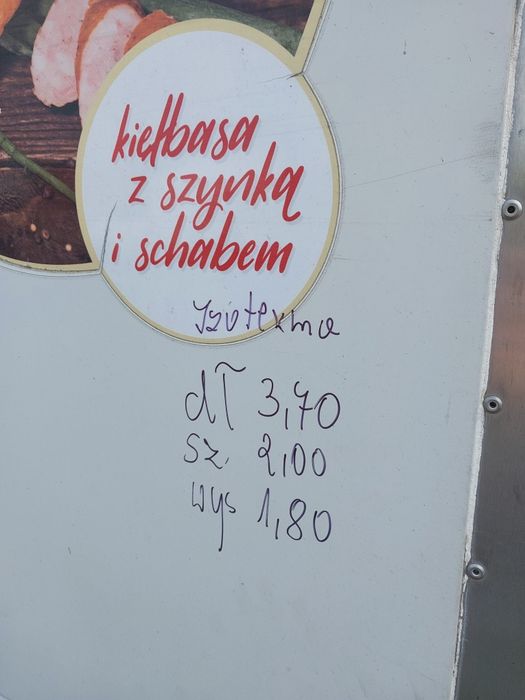 kiełbasa
z szynką
i schabem
Izotexma
dł 3,70
sz. 2,00
wys 1,80